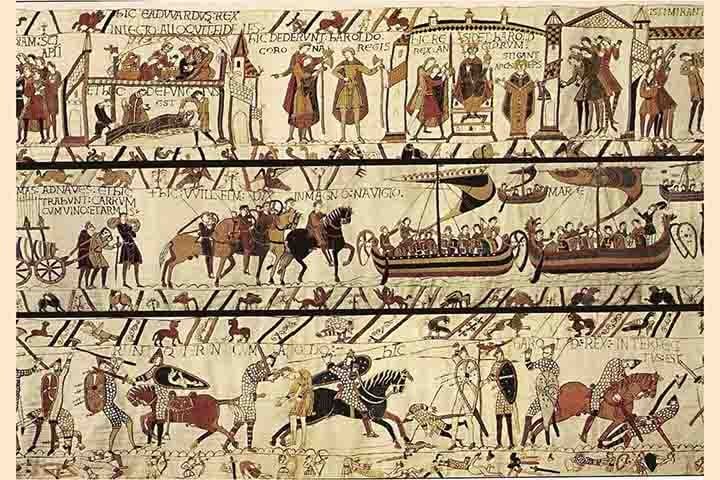 hIC EADWARDUS: REX
INLECTO: ALLOQVIT: FIDELES:
hIC DEDERUNT: hAROLDO:
CORONA REGIS
hIC RESIDET: hAROLD
REX: ANGLORUM:
STIGANT
ARChIEPS
ISTI MIRANT
ET hIC: DEFUNCTUS
EST
AD NAVES: ET hIC
TRAhUNT: CARRUM
CUM VINO: ET ARMIS:
+hIC: VVILLELM: DUX IN MAGNO: NAVIGIO:
MARE
hIC hAROLD: REX: INTERFEC
TUS: EST